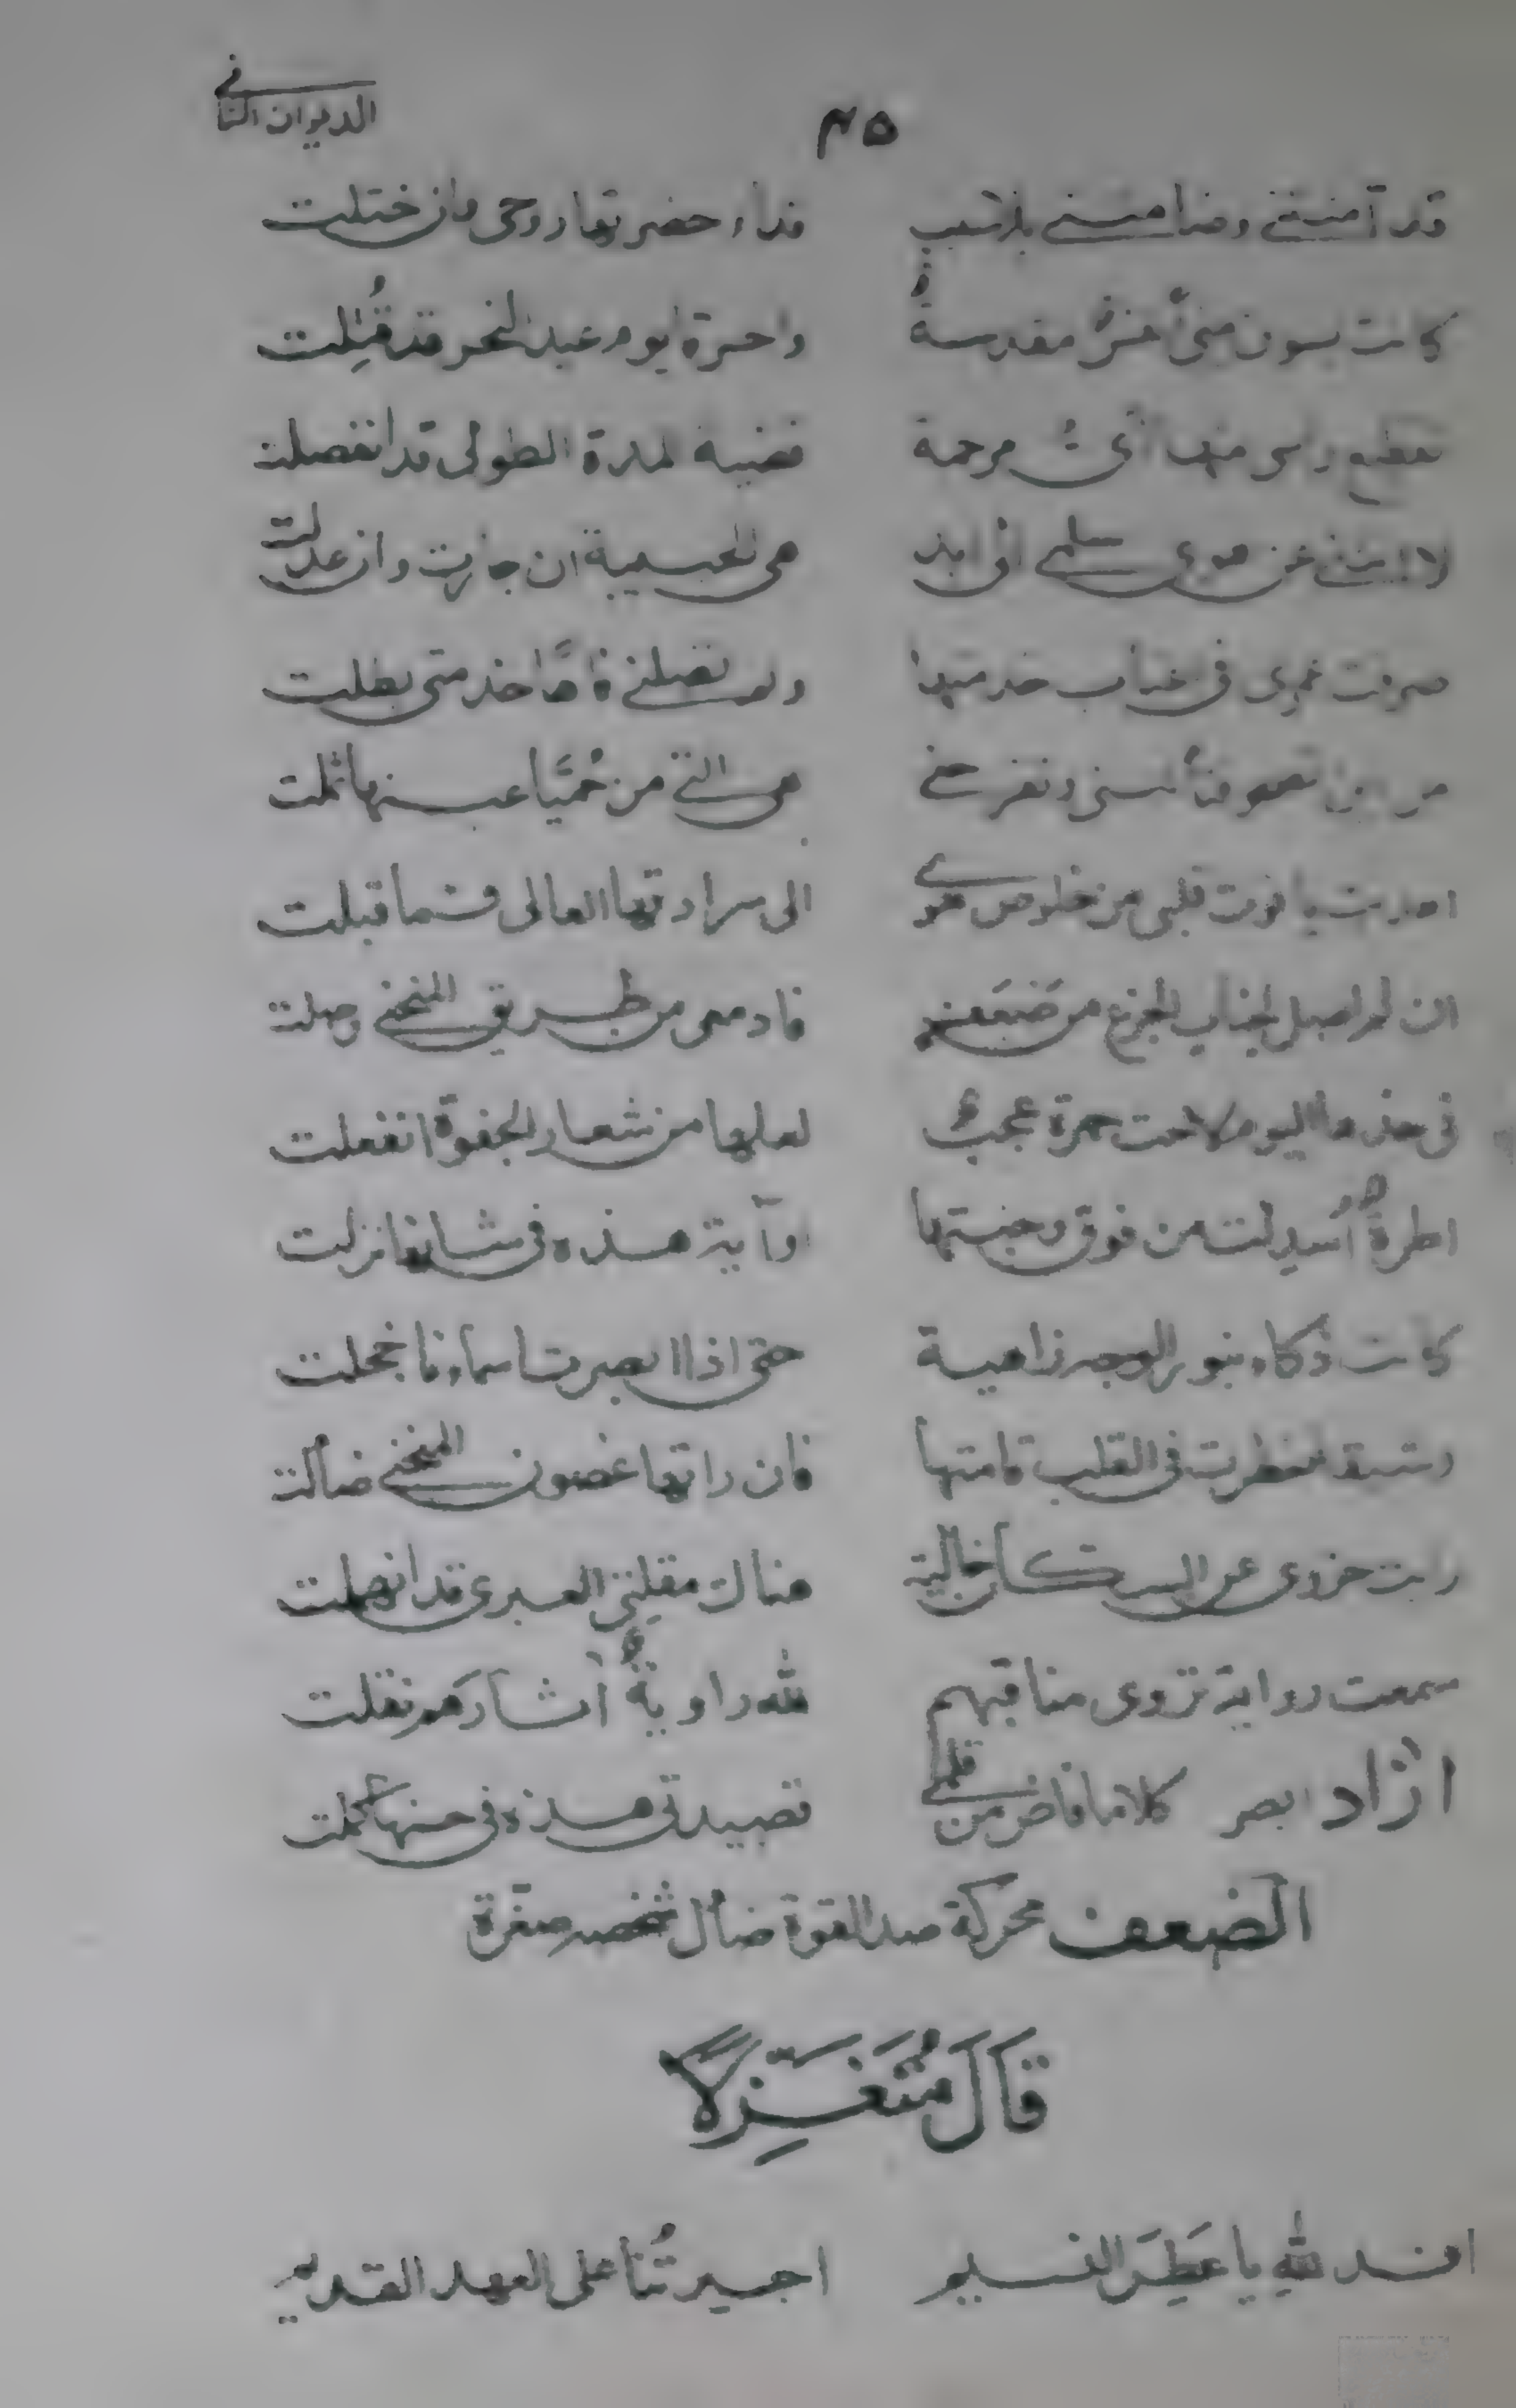 ٣٥ الديوان الثاني
قد آمنتني وضامنتني بلا سبب فداء حضرتها روحي وان ختلت
كانت بسون منى مقدسةٌ واحسرة يوم عيد النحر قد قُتِلت
مرحمة قضية لمدة الطولى قد انفصلت
لا انثني عن هوى سلمى الى ابد هي الحبيبة ان جارت وان عدلت
صرفت عمري في جناب خدمتها ولم تصلني فآهًا خدمتي بطلت
هي التي من حُمَيَّا عينها ثملت
اهديت ياقوت قلبي من خلوص هوى الى سرادقها العالي فما قبلت
ان لم اصل لجناب الجزع من ضَعَف فادمعي من طريق المنحنى وصلت
في خدها اليوم لاحت حمرة عجب لعلها من شعار الجفوة انفعلت
اطرةٌ أُسدِلت من فوق وجنتها او آية هذه في شانها نزلت
كانت ذكاء بنور الوجه زاهية حتى اذا ابصرت اسماءنا خجلت
خطرت في القلب قامتها فان راتها غصون المنحنى ضألت
رايت حزوى عن خالية هناك مقلتي العبرى قد انهملت
سمعت رواية تروى مناقبهم لله راوية آثارهم نقلت
آزاد ابصر كلاما فاض من قلمي قصيدتي هذه في حسنها كملت
الضعف محركة ضد القوة ضأل شخصه صغرة
قَالَ مُتَغَزِّلًا
افد لله يا عَطِرَ النسيم اجيرتُنا على العهد القديم